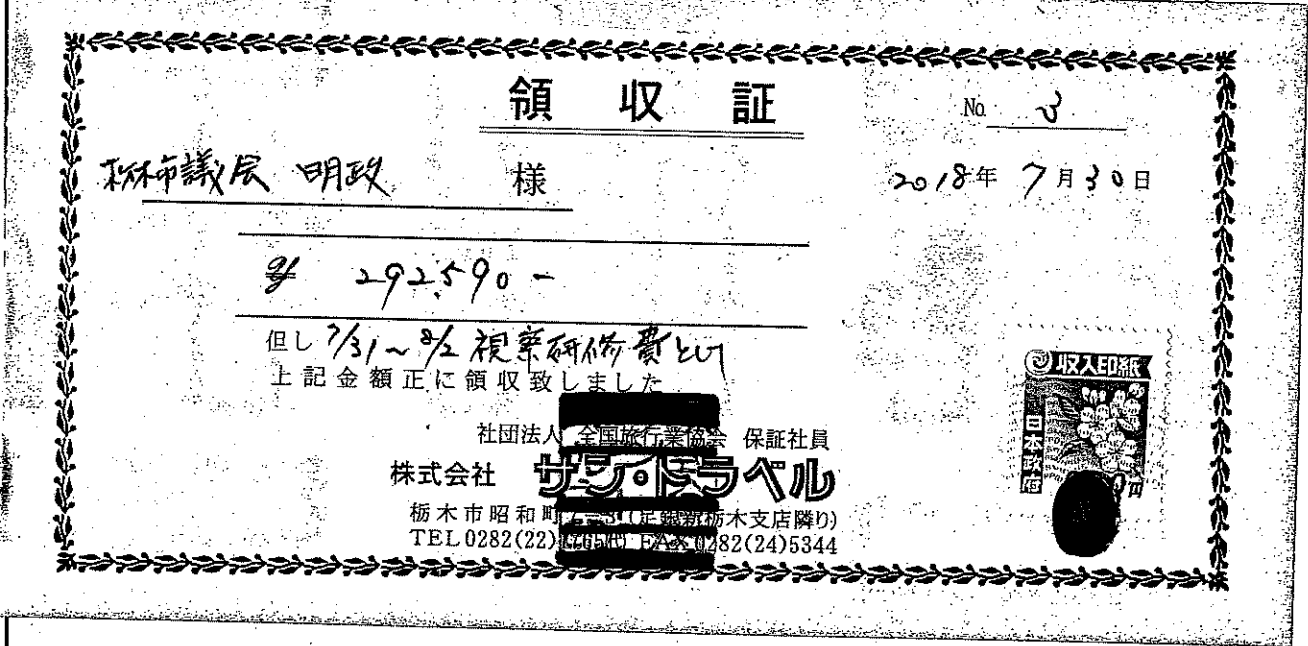 領収証
No. 3
栃木市議会 明政 様
2018年 7月30日
¥ 292,590-
但し 7/31~8/2 視察研修費として
上記金額正に領収致しました
収入印紙
日本政府
円
社団法人 全国旅行業協会 保証社員
株式会社 サン・トラベル
栃木市昭和町 (足銀新栃木支店隣り)
TEL 0282(22) FAX 0282(24)5344